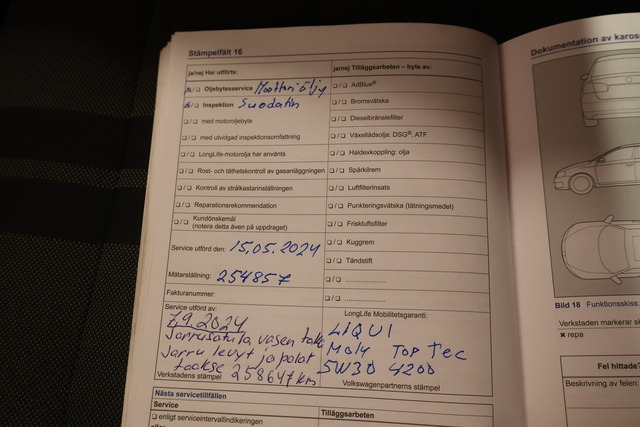 Stämpelfält 16
Dokumentation av kaross
ja/nej Har utförts:
ja/nej Tilläggsarbeten – byte av:
Oljebytesservice Moottoriöljy
AdBlue®
Inspektion Suodatin
Bromsvätska
med motoroljebyte
Dieselbränslefilter
med utvidgad inspektionsomfattning
Växellådsolja: DSG®, ATF
LongLife-motorolja har använts
Haldexkoppling: olja
Rost- och täthetskontroll av gasanläggningen
Spärkilrem
Kontroll av strålkastarinställningen
Luftfilterinsats
Reparationsrekommendation
Punkteringsvätska (tätningsmedel)
Kundönskemål
(notera detta även på uppdraget)
Friskluftsfilter
Kuggrem
Service utförd den: 15.05.2024
Tändstift
Mätarställning: 254857
Fakturanummer:
Service utförd av:
LongLife Mobilitetsgaranti:
7.9.2024
LIQUI
Jarrusatula vasen
MOLY TOP TEC
Jarru levyt ja palat
5W30 4200
taakse 258647 km
Verkstadens stämpel
Volkswagenpartnerns stämpel
Nästa servicetillfällen
Service
Tilläggsarbeten
enligt serviceintervallindikeringen
Bild 18 Funktionsskiss:
Verkstaden markerar sk
✖ repa
Fel hittade?
Beskrivning av felen: